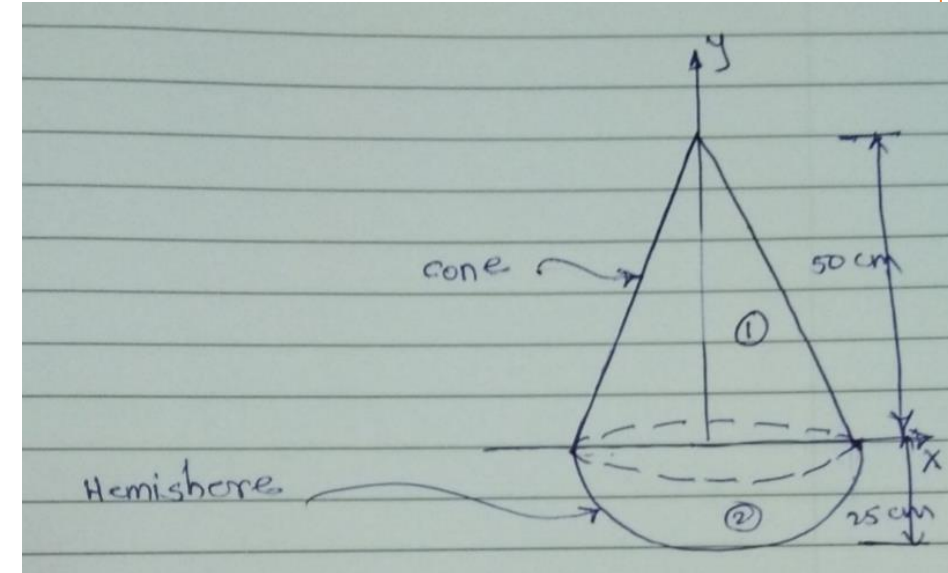 y
cone
50 cm
①
x
Hemishere
②
25 cm